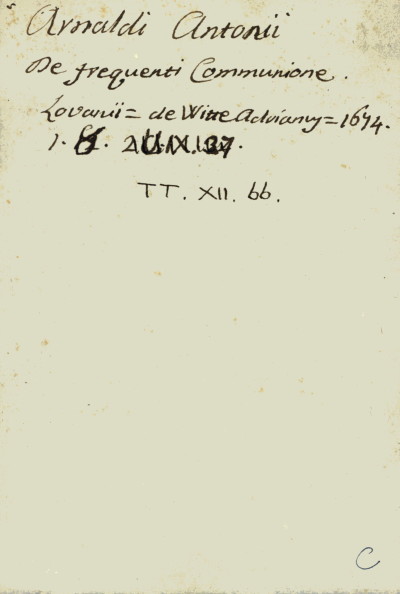 Arnaldi Antonii
De frequenti Communione.
Lovanii = de Witte Adriany = 1674.
1.
TT. XII. 66.
C